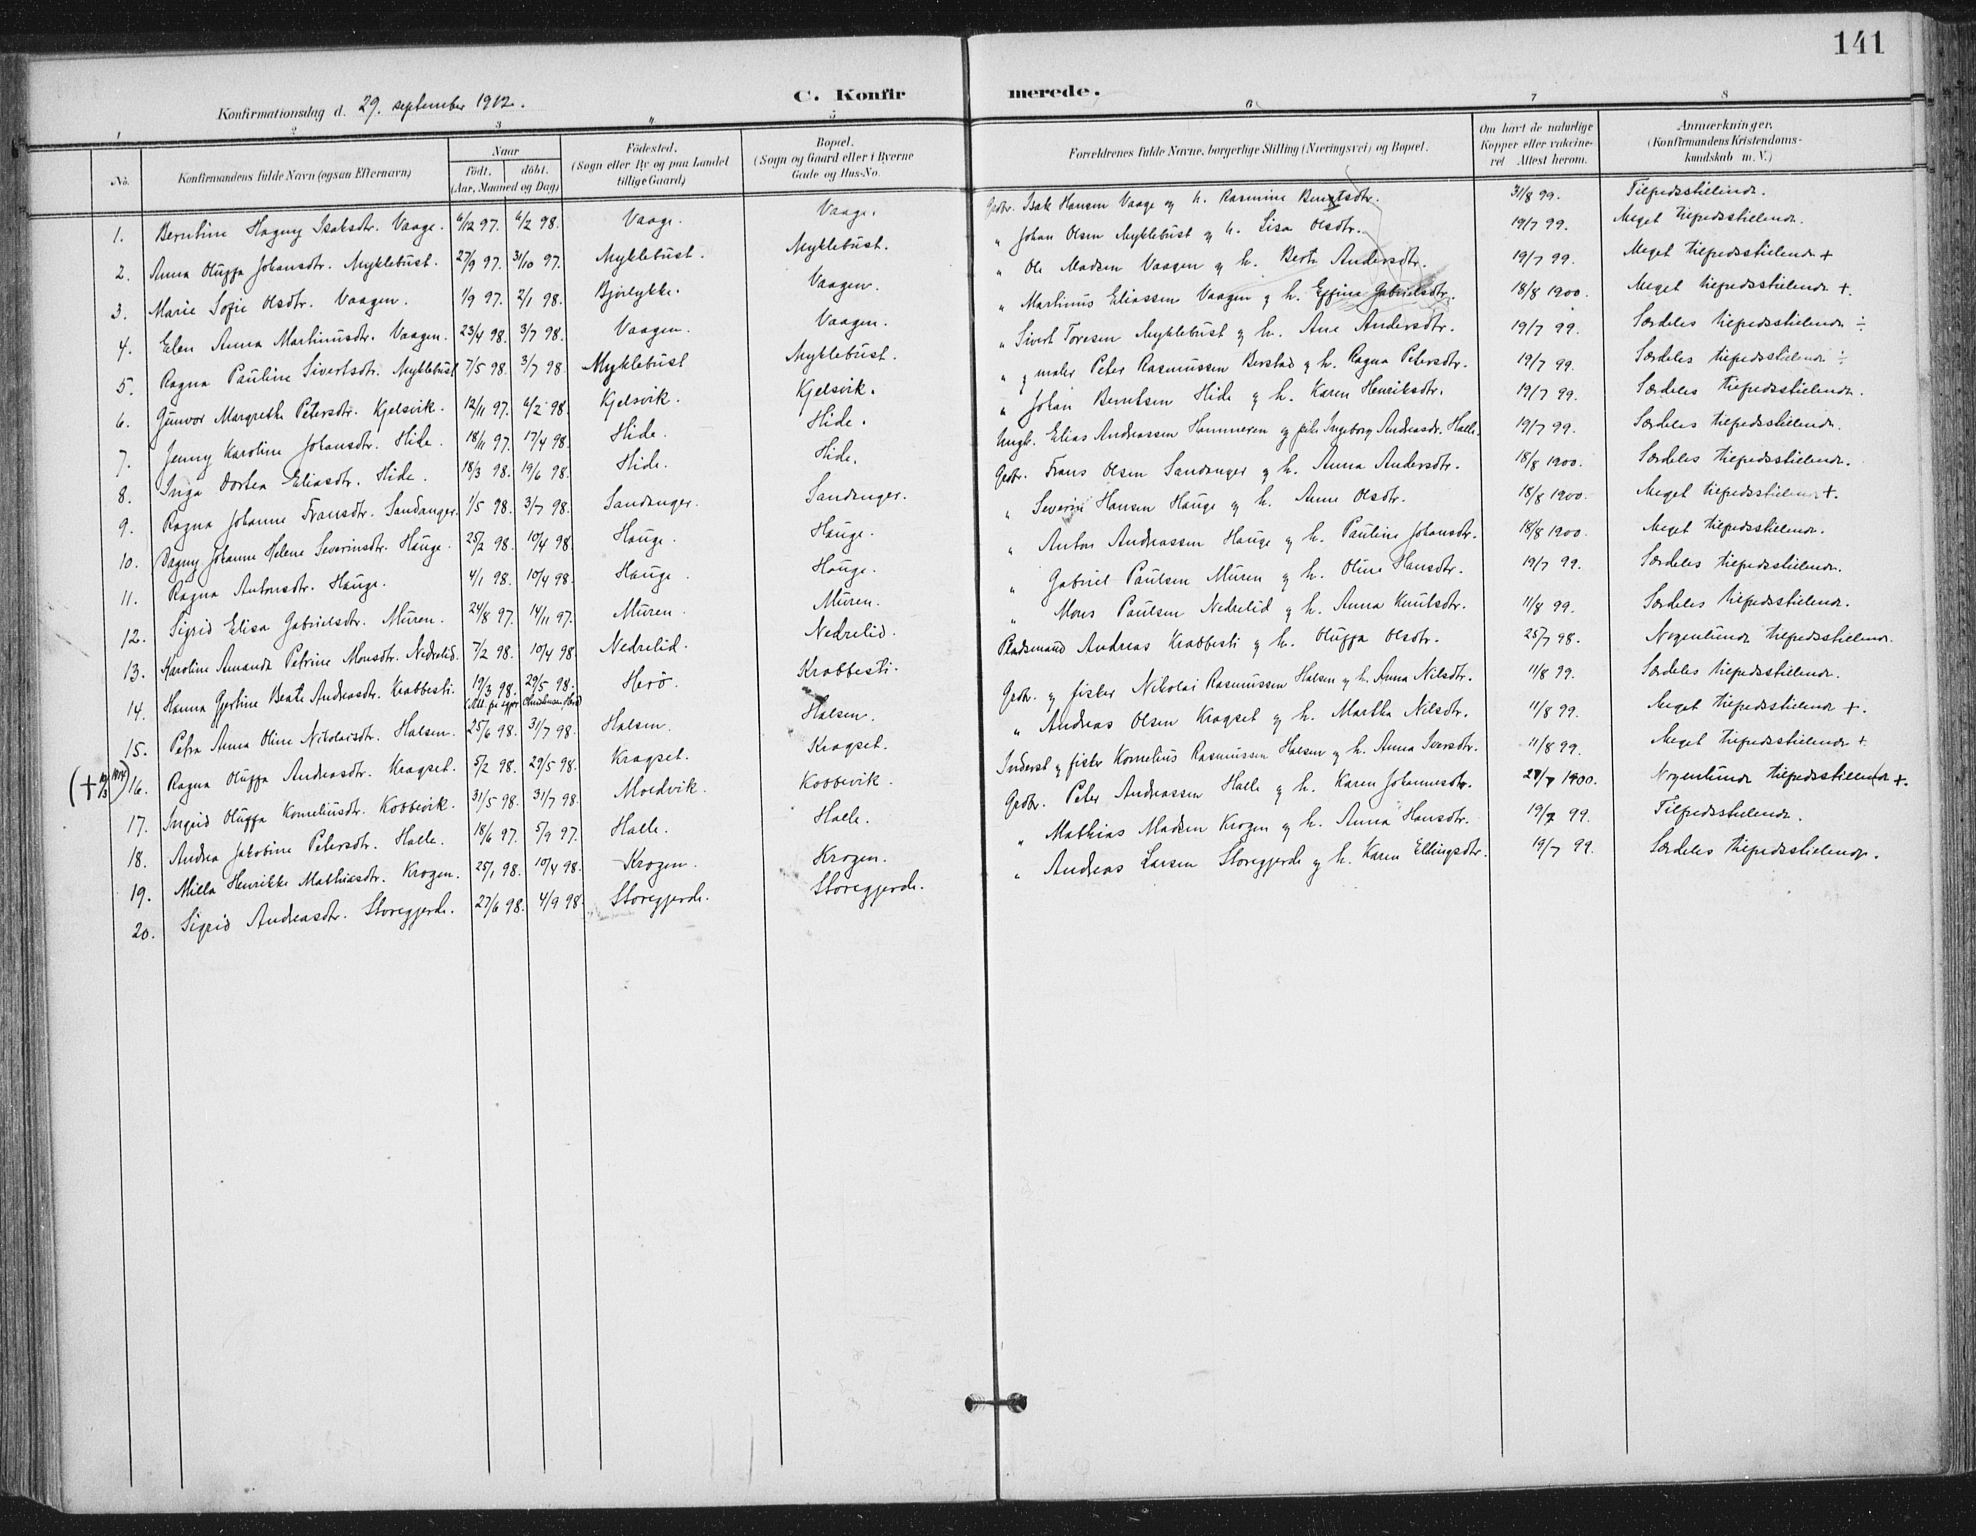 141
Konfirmationsdag d. 29. september 1912.
C. Konfirmerede.
1 2 3 4 5 6 7 8
No.
Konfirmandens fulde Navn (ogsaa Efternavn)
Naar
født. døbt.
(Aar, Maaned og Dag)
Fødested.
(Sogn eller By og paa Landet
tillige Gaard)
Bopæl.
(Sogn og Gaard eller i Byerne
Gade og Hus-No.
Forældrenes fulde Navne, borgerlige Stilling (Næringsvei) og Bopæl.
Om havt de naturlige
Kopper eller vakcine-
ret. Attest herom.
Anmærkninger.
(Konfirmandens Kristendoms-
kundskab m. V.)
1. Berntine Hagny Isaksdtr. Vaage. 6/12 97. 6/2 98. Vaage. Vaage. Grdbr. Isak Hansen Vaage og h. Rasmine Berntsdtr. 31/8 99. Tilfredsstillende.
2. Anna Oluffa Johansdtr. Myklebust. 27/9 97. 31/10 97. Myklebust. Myklebust. " Johan Olsen Myklebust og h. Lisa Olsdtr. 19/7 99. Meget tilfredsstillende.
3. Marie Sofie Olsdtr. Vaagen. 1/9 97. 2/1 98. Bjørlykke. Vaagen. " Ole Madsen Vaagen og h. Berte Andersdtr. 19/7 99. Meget tilfredsstillende +
4. Elen Anna Martinusdtr. Vaagen. 23/4 98. 3/7 98. Vaagen. Vaagen. " Martinus Eliassen Vaagen og h. Effina Gabrielsdtr. 18/8 1900. Meget tilfredsstillende +.
5. Ragna Pauline Sivertsdtr. Myklebust 7/5 98. 3/7 98. Myklebust Myklebust. " Sivert Toresen Myklebust og h. Ane Andersdtr. 19/7 99. Særdeles tilfredsstillende ÷
6. Gunvor Margrethe Petersdtr. Kjelsvik. 12/11 97. 6/2 98. Kjelsvik. Kjelsvik. " og maler Peter Rasmussen Berstad og h. Ragna Petersdtr. 19/7 99. Særdeles tilfredsstillende ÷
7. Jenny Karoline Johansdtr. Hide. 18/11 97. 17/4 98. Hide. Hide. " Johan Berntsen Hide og h. Karen Henriksdtr. 19/7 99. Særdeles tilfredsstillende.
8. Inga Dortea Eliasdtr. Hide. 18/3 98. 19/6 98. Hide. Hide. Ungk. Elias Andreassen Hammeren og pike Ingeborg Andreasdtr. Halle. 19/7 99. Særdeles tilfredsstillende.
9. Ragna Johanne Fransdtr. Sandanger. 1/5 98. 3/7 98. Sandanger. Sandanger. Grdbr. Frans Olsen Sandanger og h. Anna Andersdtr. 18/8 1900. Særdeles tilfredsstillende.
10. Dagny Johanne Helene Severinsdtr. Hauge. 25/2 98. 10/4 98. Hauge. Hauge. " Severin Hansen Hauge og h. Anne Olsdtr. 18/8 1900. Meget tilfredsstillende +.
11. Ragna Antonsdtr. Hauge. 4/1 98. 10/4 98. Hauge. Hauge. " Anton Andreassen Hauge og h. Pauline Johansdtr. 18/8 1900. Meget tilfredsstillende.
12. Sigrid Elisa Gabrielsdtr. Muren. 24/8 97. 14/11 97. Muren. Muren. " Gabriel Paulsen Muren og h. Oline Hansdtr. 19/7 99. Særdeles tilfredsstillende.
13. Karoline Amanda Petrine Monsdtr. Nedrelid. 7/2 98. 10/4 98 Nedrelid. Nedrelid. " Mons Paulsen Nedrelid og h. Anna Knutsdtr. 11/8 99. Særdeles tilfredsstillende.
14. Hanna Gjertine Beate Andreasdtr. Krabbesti. 19/3 98. 29/5 98. Herö. Krabbesti. Pladsmand Andreas Krabbesti og h. Oluffa Olsdtr. 25/7 98. Nogenlunde tilfredsstillende.
15. Petra Anna Oline Nikolaisdtr. Halsen. 25/6 98. 31/7 98. Halsen. Halsen. Grdbr. og fisker Nikolai Rasmussen Halsen og h. Anna Nilsdtr. 11/8 99. Særdeles tilfredsstillende.
16. Ragna Oluffa Andreasdtr. Kragset. 5/2 98. 29/5 98. Kragset. Kragset. " Andreas Olsen Kragset og h. Martha Nilsdtr. 11/8 99. Meget tilfredsstillende +.
17. Ingrid Oluffa Korneliusdtr. Kobbevik. 31/5 98. 31/7 98. Moldvik. Kobbevik. Inderst og fisker Kornelius Rasmussen Halsen og h. Anna Iversdtr. 11/8 99. Meget tilfredsstillende +
18. Andrea Jakobine Petersdtr. Halle. 18/6 97. 5/9 97. Halle. Halle. Grdbr. Peter Andreassen Halle og h. Karen Johannesdtr. 1900. Nogenlunde tilfredsstillende +.
19. Milla Henrikke Mathiasdtr. Krogen. 25/1 98. 10/4 98. Krogen. Krogen. " Mathias Madsen Krogen og h. Anna Hansdtr. 19/7 99. Tilfredsstillende.
20. Sigrid Andreasdtr. Storegjerde. 27/6 98. 4/9 98. Storegjerde. Storegjerde. " Andreas Larsen Storegjerde og h. Karen Ellingsdtr. 19/7 99. Særdeles tilfredsstillende.